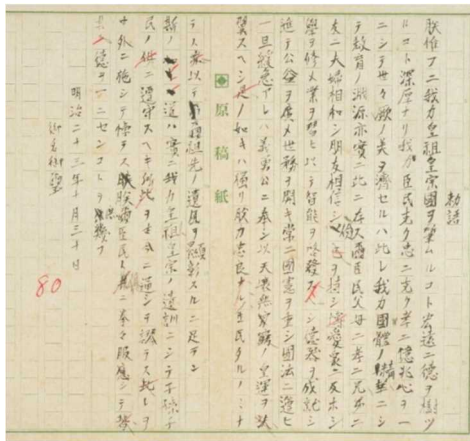 勅語
朕惟フニ我カ皇祖皇宗國ヲ肇ムルコト宏遠ニ徳ヲ樹ツ
ルコト深厚ナリ我カ臣民克ク忠ニ克ク孝ニ億兆心ヲ一
ニシテ世々厥ノ美ヲ濟セルハ此レ我カ國體ノ精華ニシ
テ教育ノ淵源亦實ニ此ニ存ス爾臣民父母ニ孝ニ兄弟ニ
友ニ夫婦相和シ朋友相信シ儉己ヲ持シ博愛衆ニ及ホシ
學ヲ修メ業ヲ習ヒ以テ智能ヲ啓發シ徳器ヲ成就シ
進テ公益ヲ廣メ世務ヲ開キ常ニ國憲ヲ重シ國法ニ遵ヒ
一旦緩急アレハ義勇公ニ奉シ以天壤無窮ノ皇運ヲ扶
翼スヘシ是ノ如キハ獨リ朕カ忠良ナルノ臣民タルノミナ
原稿紙
ラス亦以テ祖先ノ遺風ヲ顯彰スルニ足ラン
斯ノ道ハ實ニ我カ皇祖皇宗ノ遺訓ニシテ子孫
民ノ倶ニ遵守スヘキ所此ヲ古今ニ通シテ謬ラス此レヲ
中外ニ施シテ悖ラス朕爾臣民ト共ニ拳々服膺シテ
徳ヲ一ニセンコトヲ庶幾フ
明治二十三年十月三十日
御名御璽
80